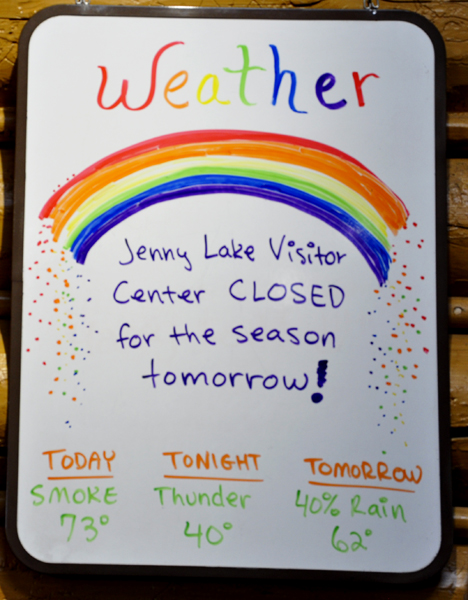 Weather
Jenny Lake Visitor
Center CLOSED
for the season
tomorrow!
TODAY TONIGHT TOMORROW
SMOKE Thunder 40% Rain
73° 40° 62°